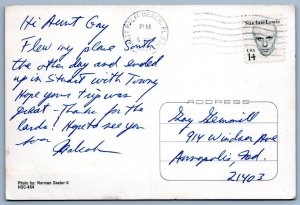 Hi Aunt Gay
Flew my plane South
the other day and ended
up in Stuart with Tommy
Hope your trip was
great - Thanks for the
cards! Hope to see you
soon
Malcolm
Photo by: Norman Seater ©
NSC-464
PALM BEACH, FL
PM
Sinclair Lewis
USA
14
ADDRESS
Gay Gemmill
914 Windsor Ave
Annapolis, Md.
21403